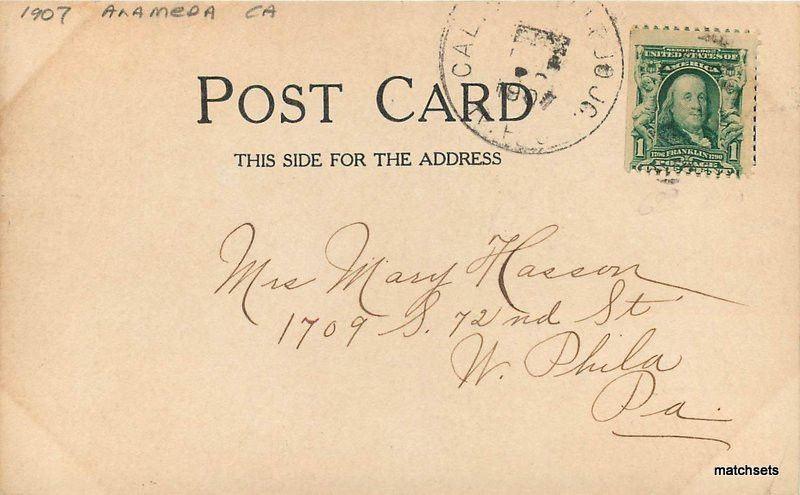 1907 ALAMEDA CA
CAL.
SERIES 1902
UNITED STATES OF
AMERICA
1706 FRANKLIN 1790
1 POSTAGE 1
POST CARD
THIS SIDE FOR THE ADDRESS
Mrs Mary Hasson
1709 S. 72nd St
W. Phila
Pa.
matchsets